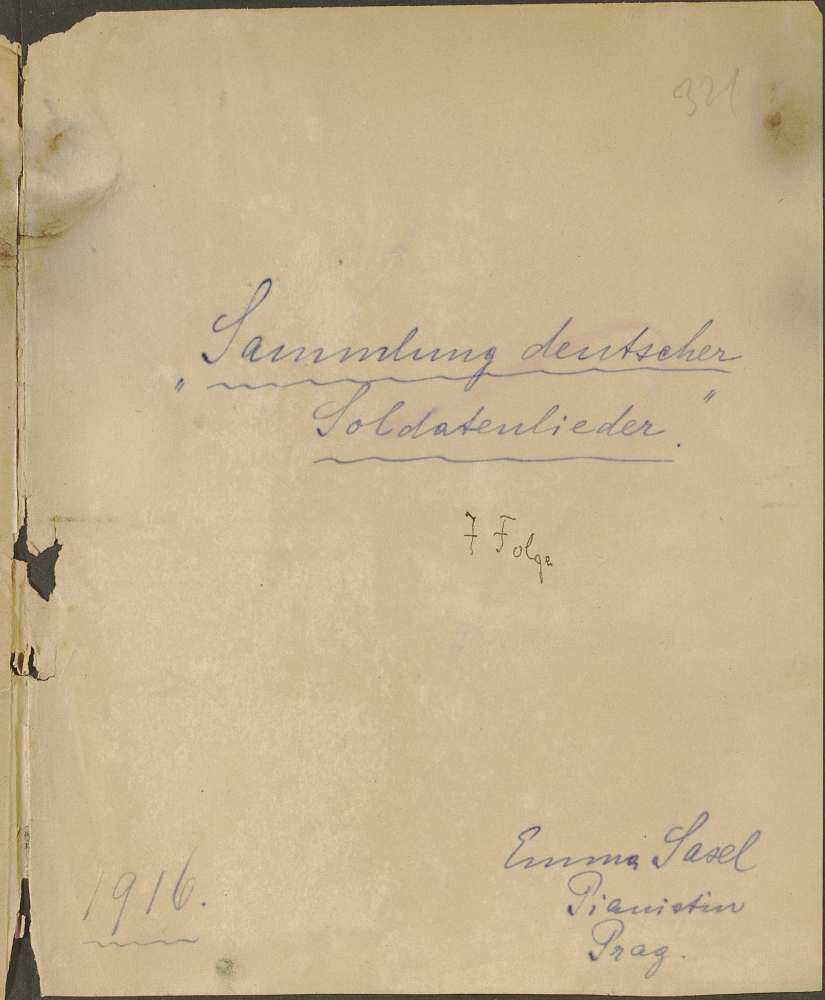 321
„Sammlung deutscher
Soldatenlieder."
7 Folge
Emma Sasel
Pianistin
Prag.
1916.